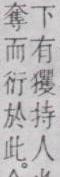 下有玃持人
奪而衍於此。